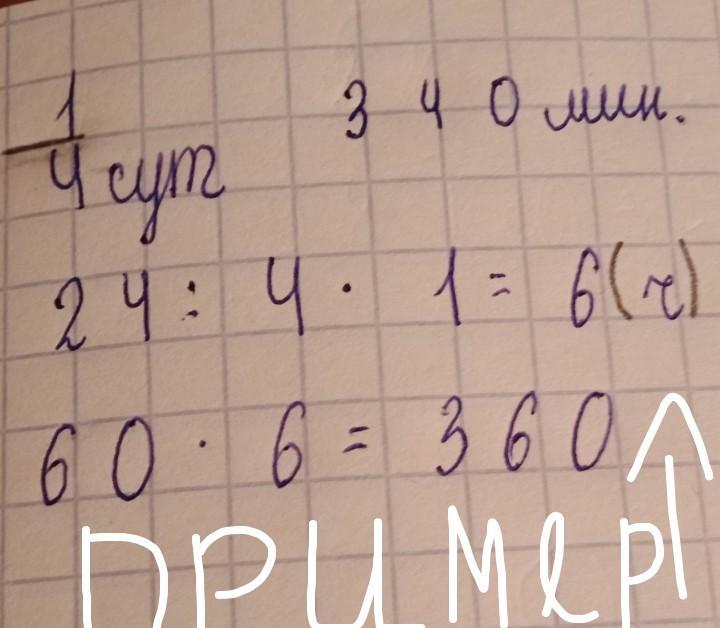 1/4 сут 340 мин.
24 : 4 · 1 = 6 (ч)
60 · 6 = 360
пример